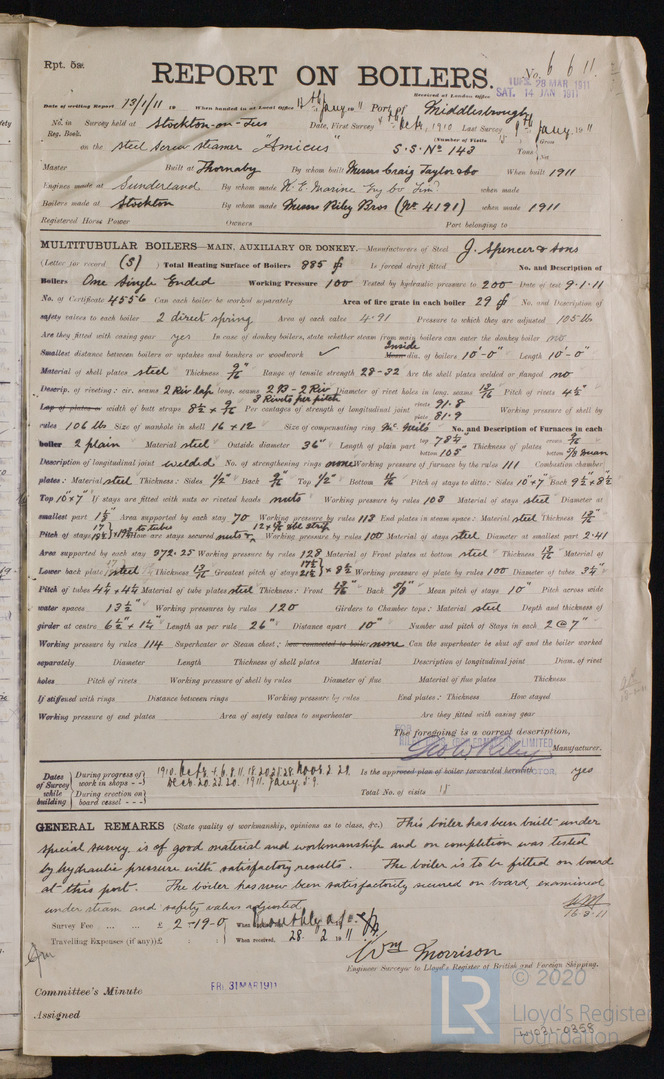 Rpt. 5a.
REPORT ON BOILERS.
No. 6611
TUES. 28 MAR 1911
Received at London Office SAT. 14 JAN 1911
Date of writing Report 13/1/11 19 When handed in at Local Office Jany 1911 Port of Middlesbrough
No. in Survey held at Stockton-on-Tees Date, First Survey 4th Oct, 1910 Last Survey 9th Jany, 1911
Reg. Book. (Number of Visits 15
on the Steel Screw steamer "Amicus" S.S. No 143 Tons
Master Built at Thornaby By whom built Messrs Craig Taylor & Co When built 1911
Engines made at Sunderland By whom made N. E. Marine Eng Co Lim when made
Boilers made at Stockton By whom made Messrs Riley Bros (No 4191) when made 1911
Registered Horse Power Owners Port belonging to
MULTITUBULAR BOILERS—MAIN, AUXILIARY OR DONKEY.—Manufacturers of Steel J. Spencer & Sons
(Letter for record (S) ) Total Heating Surface of Boilers 885 Is forced draft fitted No. and Description of
Boilers One Single Ended Working Pressure 100 Tested by hydraulic pressure to 200 Date of test 9.1.11
No. of Certificate 4556 Can each boiler be worked separately Area of fire grate in each boiler 29 No. and Description of
safety valves to each boiler 2 direct spring Area of each valve 4.91 Pressure to which they are adjusted 105 lb
Are they fitted with easing gear yes In case of donkey boilers, state whether steam from main boilers can enter the donkey boiler no
Smallest distance between boilers or uptakes and bunkers or woodwork ✓ Inside dia. of boilers 10'-0" Length 10'-0"
Material of shell plates steel Thickness 9/16 Range of tensile strength 28-32 Are the shell plates welded or flanged no
Descrip. of riveting: cir. seams 2 Riv lap long. seams 2 B-2 Riv Diameter of rivet holes in long. seams 13/16 Pitch of rivets 4½
3 Rivets per pitch
Lap of plates or width of butt straps 8½ × 9/16 Per centages of strength of longitudinal joint rivets 91.8 plate 81.9 Working pressure of shell by
rules 106 lbs Size of manhole in shell 16 × 12 Size of compensating ring Mc Neils No. and Description of Furnaces in each
boiler 2 plain Material steel Outside diameter 36" Length of plain part top 78½" bottom 105" Thickness of plates
Description of longitudinal joint welded No. of strengthening rings none Working pressure of furnace by the rules 111 Combustion chamber
plates: Material steel Thickness: Sides ½" Back 9/16 Top ½" Bottom Pitch of stays to ditto: Sides 10" × 7" Back 9½ × 8½
Top 10" × 7" If stays are fitted with nuts or riveted heads nuts Working pressure by rules 103 Material of stays steel Diameter at
smallest part Area supported by each stay 70 Working pressure by rules 113 End plates in steam space: Material steel Thickness
Pitch of stays How are stays secured Working pressure by rules 100 Material of stays steel Diameter at smallest part 2.41
Area supported by each stay 372.25 Working pressure by rules 128 Material of Front plates at bottom steel Thickness 13/16 Material of
Lower back plate steel Thickness 13/16 Greatest pitch of stays × 8½ Working pressure of plate by rules 100 Diameter of tubes 3¼"
Pitch of tubes 4½ × 4½ Material of tube plates steel Thickness: Front 13/16 Back 5/8" Mean pitch of stays 10" Pitch across wide
water spaces 13½" Working pressures by rules 120 Girders to Chamber tops: Material steel Depth and thickness of
girder at centre 6½" × 1¼" Length as per rule 26" Distance apart 10" Number and pitch of Stays in each 2 @ 7"
Working pressure by rules 114 Superheater or Steam chest; how connected to boiler none Can the superheater be shut off and the boiler worked
separately Diameter Length Thickness of shell plates Material Description of longitudinal joint Diam. of rivet
holes Pitch of rivets Working pressure of shell by rules Diameter of flue Material of flue plates Thickness
If stiffened with rings Distance between rings Working pressure by rules End plates: Thickness How stayed
Working pressure of end plates Area of safety valves to superheater Are they fitted with easing gear
The foregoing is a correct description,
Geo W Riley Manufacturer.
Dates of Survey while building
During progress of work in shops - - 1910. Oct. 4. 6. 8. 11. 18. 20. 25. 28. Nov. 2. 29.
During erection on board vessel - - - Dec. 20. 23. 30. 1911. Jany. 5. 9.
Is the approved plan of boiler forwarded herewith yes
Total No. of visits 15
GENERAL REMARKS (State quality of workmanship, opinions as to class, &c.) This boiler has been built under
special survey, is of good material and workmanship and on completion was tested
by hydraulic pressure with satisfactory results. The boiler is to be fitted on board
at this port. The boiler has now been satisfactorily secured on board, examined
under steam and safety valves adjusted
16.3.11
Survey Fee ... ... £ 2-19-0 When applied for Monthly a/c
Travelling Expenses (if any) £ : : When received, 28. 2 1911
Wm Morrison
Engineer Surveyor to Lloyd's Register of British and Foreign Shipping.
Committee's Minute FRI. 31 MAR 1911
Assigned
© 2020
LR
Lloyd's Register
Foundation
W1031-0358